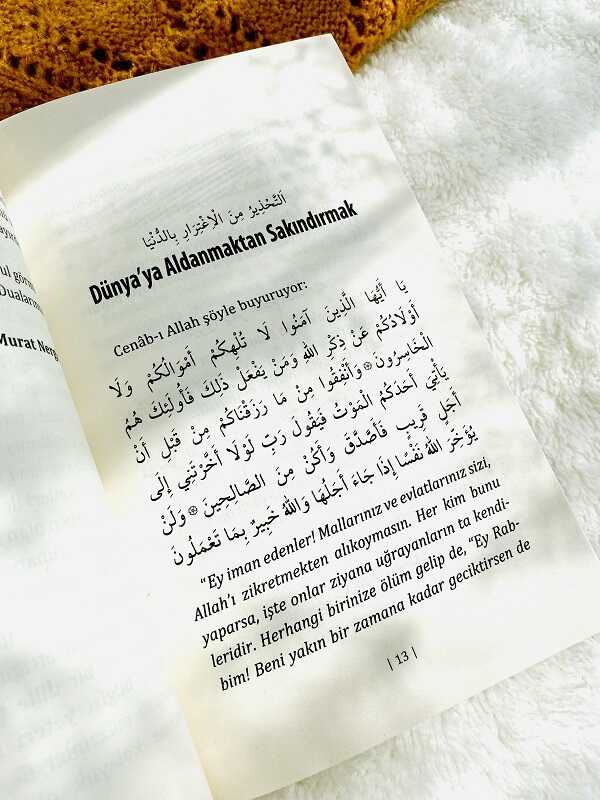 ayın
ul görm
Dualarını
Murat Nerg
اَلتَّحْذِيرُ مِنَ الْاِغْتِرَارِ بِالدُّنْيَا
Dünya’ya Aldanmaktan Sakındırmak
Cenâb-ı Allah şöyle buyuruyor:
يَا أَيُّهَا الَّذِينَ آمَنُوا لَا تُلْهِكُمْ أَمْوَالُكُمْ وَلَا
أَوْلَادُكُمْ عَنْ ذِكْرِ اللهِ وَمَنْ يَفْعَلْ ذَلِكَ فَأُولَئِكَ هُمُ
الْخَاسِرُونَ ۞ وَأَنْفِقُوا مِنْ مَا رَزَقْنَاكُمْ مِنْ قَبْلِ أَنْ
يَأْتِيَ أَحَدَكُمُ الْمَوْتُ فَيَقُولَ رَبِّ لَوْلَا أَخَّرْتَنِي إِلَى
أَجَلٍ قَرِيبٍ فَأَصَّدَّقَ وَأَكُنْ مِنَ الصَّالِحِينَ ۞ وَلَنْ
يُؤَخِّرَ اللهُ نَفْسًا إِذَا جَاءَ أَجَلُهَا وَاللهُ خَبِيرٌ بِمَا تَعْمَلُونَ
“Ey iman edenler! Mallarınız ve evlatlarınız sizi,
Allah’ı zikretmekten alıkoymasın. Her kim bunu
yaparsa, işte onlar ziyana uğrayanların ta kendi-
leridir. Herhangi birinize ölüm gelip de, “Ey Rab-
bim! Beni yakın bir zamana kadar geciktirsen de
| 13 |